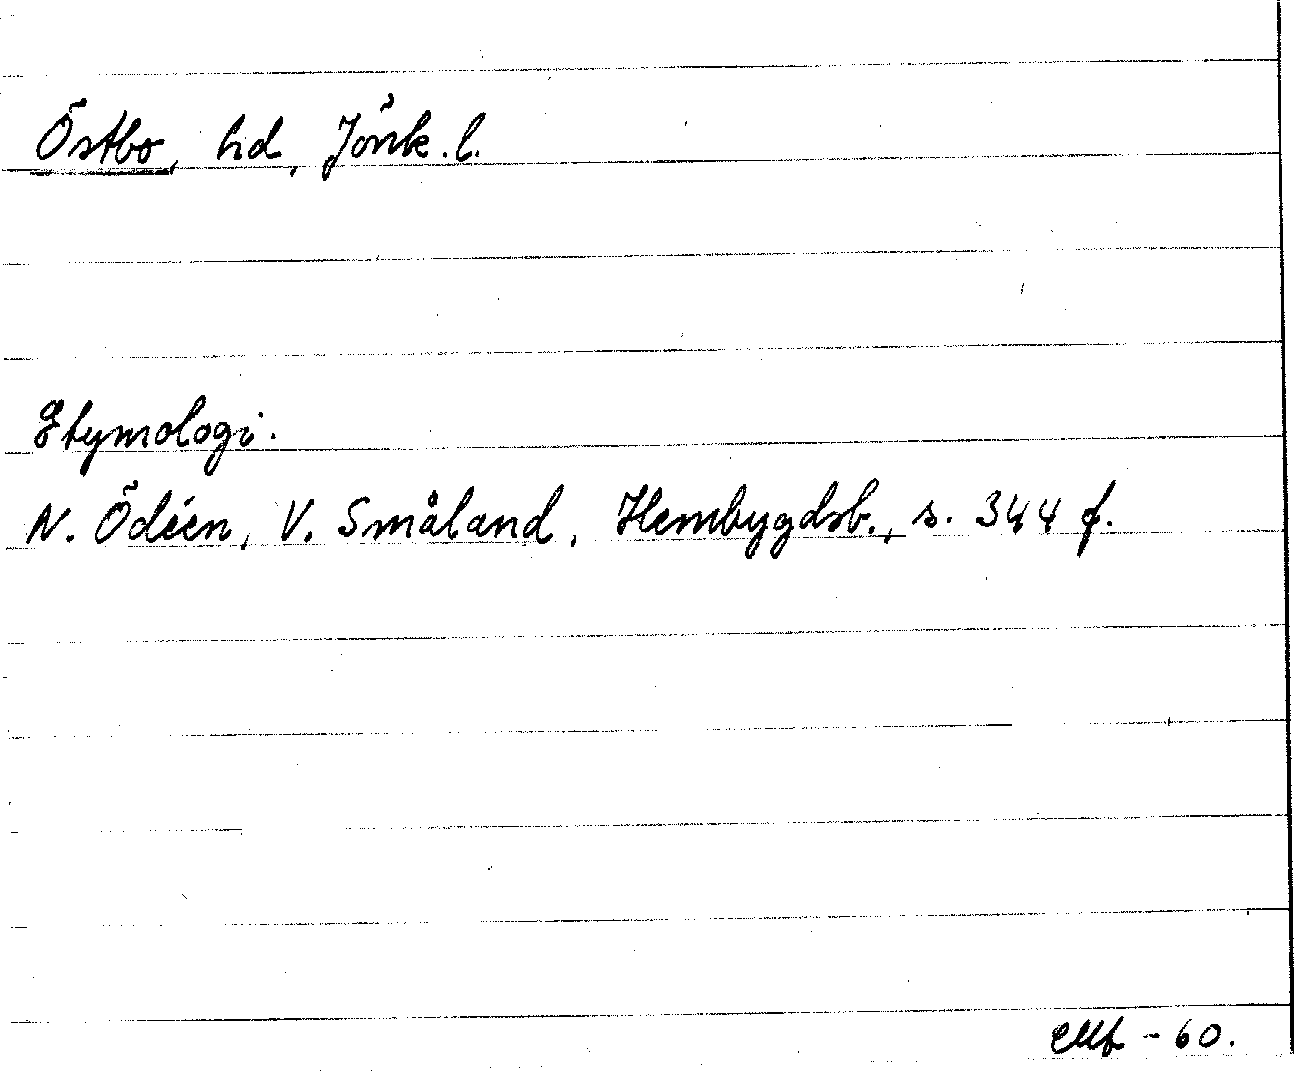 Östbo, hd, Jönk. l.
Etymologi.
N. Ödéen, V. Småland, Hembygdsb., s. 344 f.
-60.